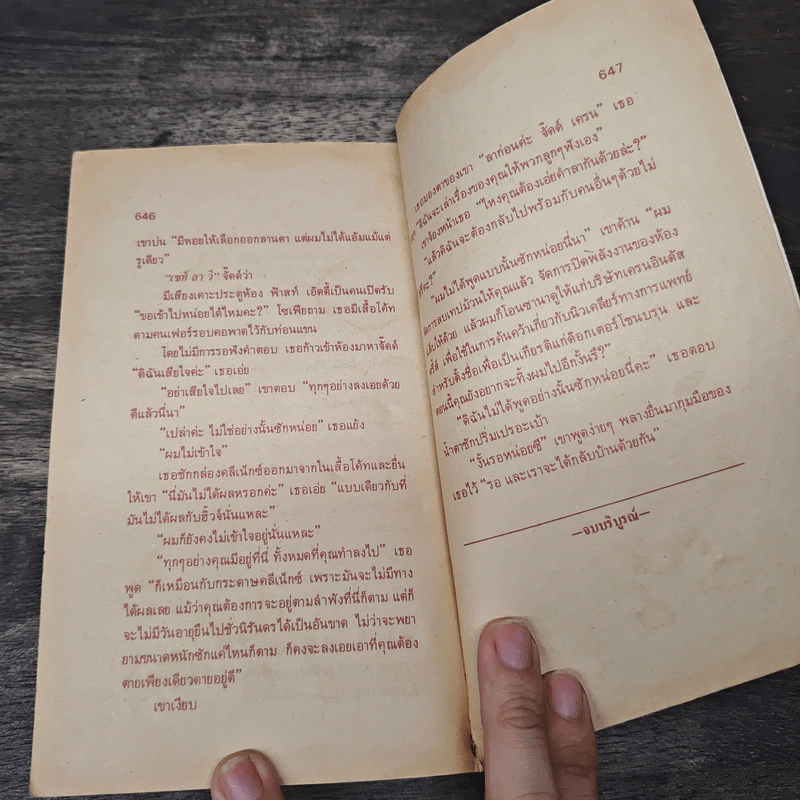 646
เขาบ่น “มีหอยให้เลือกออกลานตา แต่ผมไม่ได้แอ้มแม้แต่
รูเดียว”
“เซท์ ลา วี” จั๊ดด์ว่า
มีเสียงเคาะประตูห้อง ฟ้าสท์ เอ๊ดดี้เป็นคนเปิดรับ
“ขอเข้าไปหน่อยได้ไหมคะ?” โซเฟียถาม เธอมีเสื้อโค้ท
ตามคนเฟอร์รอบคอพาดไว้กับท่อนแขน
โดยไม่มีการรอฟังคำตอบ เธอก้าวเข้าห้องมาหาจั๊ดด์
“ดิฉันเสียใจค่ะ” เธอเอ่ย
“อย่าเสียใจไปเลย” เขาตอบ “ทุกๆอย่างลงเอยด้วย
ดีแล้วนี่นา”
“เปล่าค่ะ ไม่ใช่อย่างนั้นซักหน่อย” เธอแย้ง
“ผมไม่เข้าใจ”
เธอชักกล่องคลีเน็กซ์ออกมาจากในเสื้อโค้ทและยื่น
ให้เขา “นี่มันไม่ได้ผลหรอกค่ะ” เธอเอ่ย “แบบเดียวกับที่
มันไม่ได้ผลกับฮิ้วจ์นั่นแหละ”
“ผมก็ยังคงไม่เข้าใจอยู่นั่นแหละ”
“ทุกๆอย่างคุณมีอยู่ที่นี่ ทั้งหมดที่คุณทำลงไป” เธอ
พูด “ก็เหมือนกับกระดาษคลีเน็กซ์ เพราะมันจะไม่มีทาง
ได้ผลเลย แม้ว่าคุณต้องการจะอยู่ตามลำพังที่นี่ก็ตาม แต่ก็
จะไม่มีวันอายุยืนไปชั่วนิรันดรได้เป็นอันขาด ไม่ว่าจะพยา
ยามขนาดหนักซักแค่ไหนก็ตาม ก็คงจะลงเอยเอาที่คุณต้อง
ตายเพียงเดียวดายอยู่ดี”
เขาเงียบ
647
เธอมองตาของเขา “ลาก่อนค่ะ จั๊ดด์ เครน” เธอ
“ดิฉันจะเล่าเรื่องของคุณให้พวกลูกๆฟังเอง”
เขาจ้องหน้าเธอ “ไหงคุณต้องเอ่ยคำลากันด้วยล่ะ?”
“แล้วดิฉันจะต้องกลับไปพร้อมกับคนอื่นๆด้วยไม่
คะ?”
“ผมไม่ได้พูดแบบนั้นซักหน่อยนี่นา” เขาค้าน “ผม
จัดการลบเทปม้วนให้คุณแล้ว จัดการปิดพลังงานของห้อง
ให้ด้วย แล้วผมก็โอนซานาดูให้แก่บริษัทเครนอินดัส
เพื่อใช้ในการค้นคว้าเกี่ยวกับนิวเคลียร์ทางการแพทย์
สำหรับตั้งชื่อเพื่อเป็นเกียรติแก่ด๊อกเตอร์โซนบรุน และ
ตอนนี้คุณยังอยากจะทิ้งผมไปอีกงั้นรึ?”
“ดิฉันไม่ได้พูดอย่างนั้นซักหน่อยนี่คะ” เธอตอบ
น้ำตาชักปริ่มเปรอะเบ้า
“งั้นรอหน่อยซี” เขาพูดง่ายๆ พลางยื่นมากุมมือของ
เธอไว้ “รอ และเราจะได้กลับบ้านด้วยกัน”
—จบบริบูรณ์—